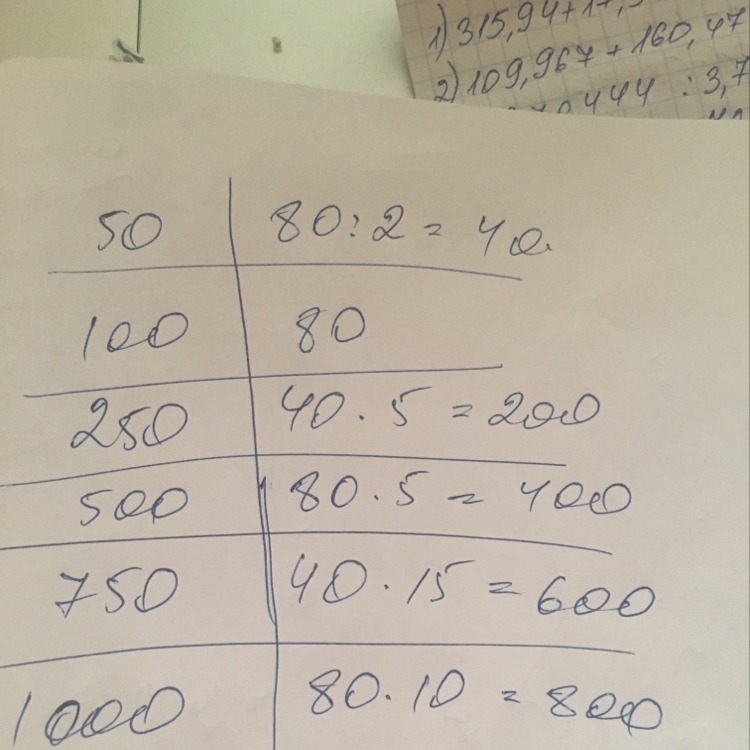 1) 315,94+17,
2) 109,967 + 160,47
444 : 3,7
50 80:2 = 40
100 80
250 40 · 5 = 200
500 80 · 5 = 400
750 40 · 15 = 600
1000 80 · 10 = 800